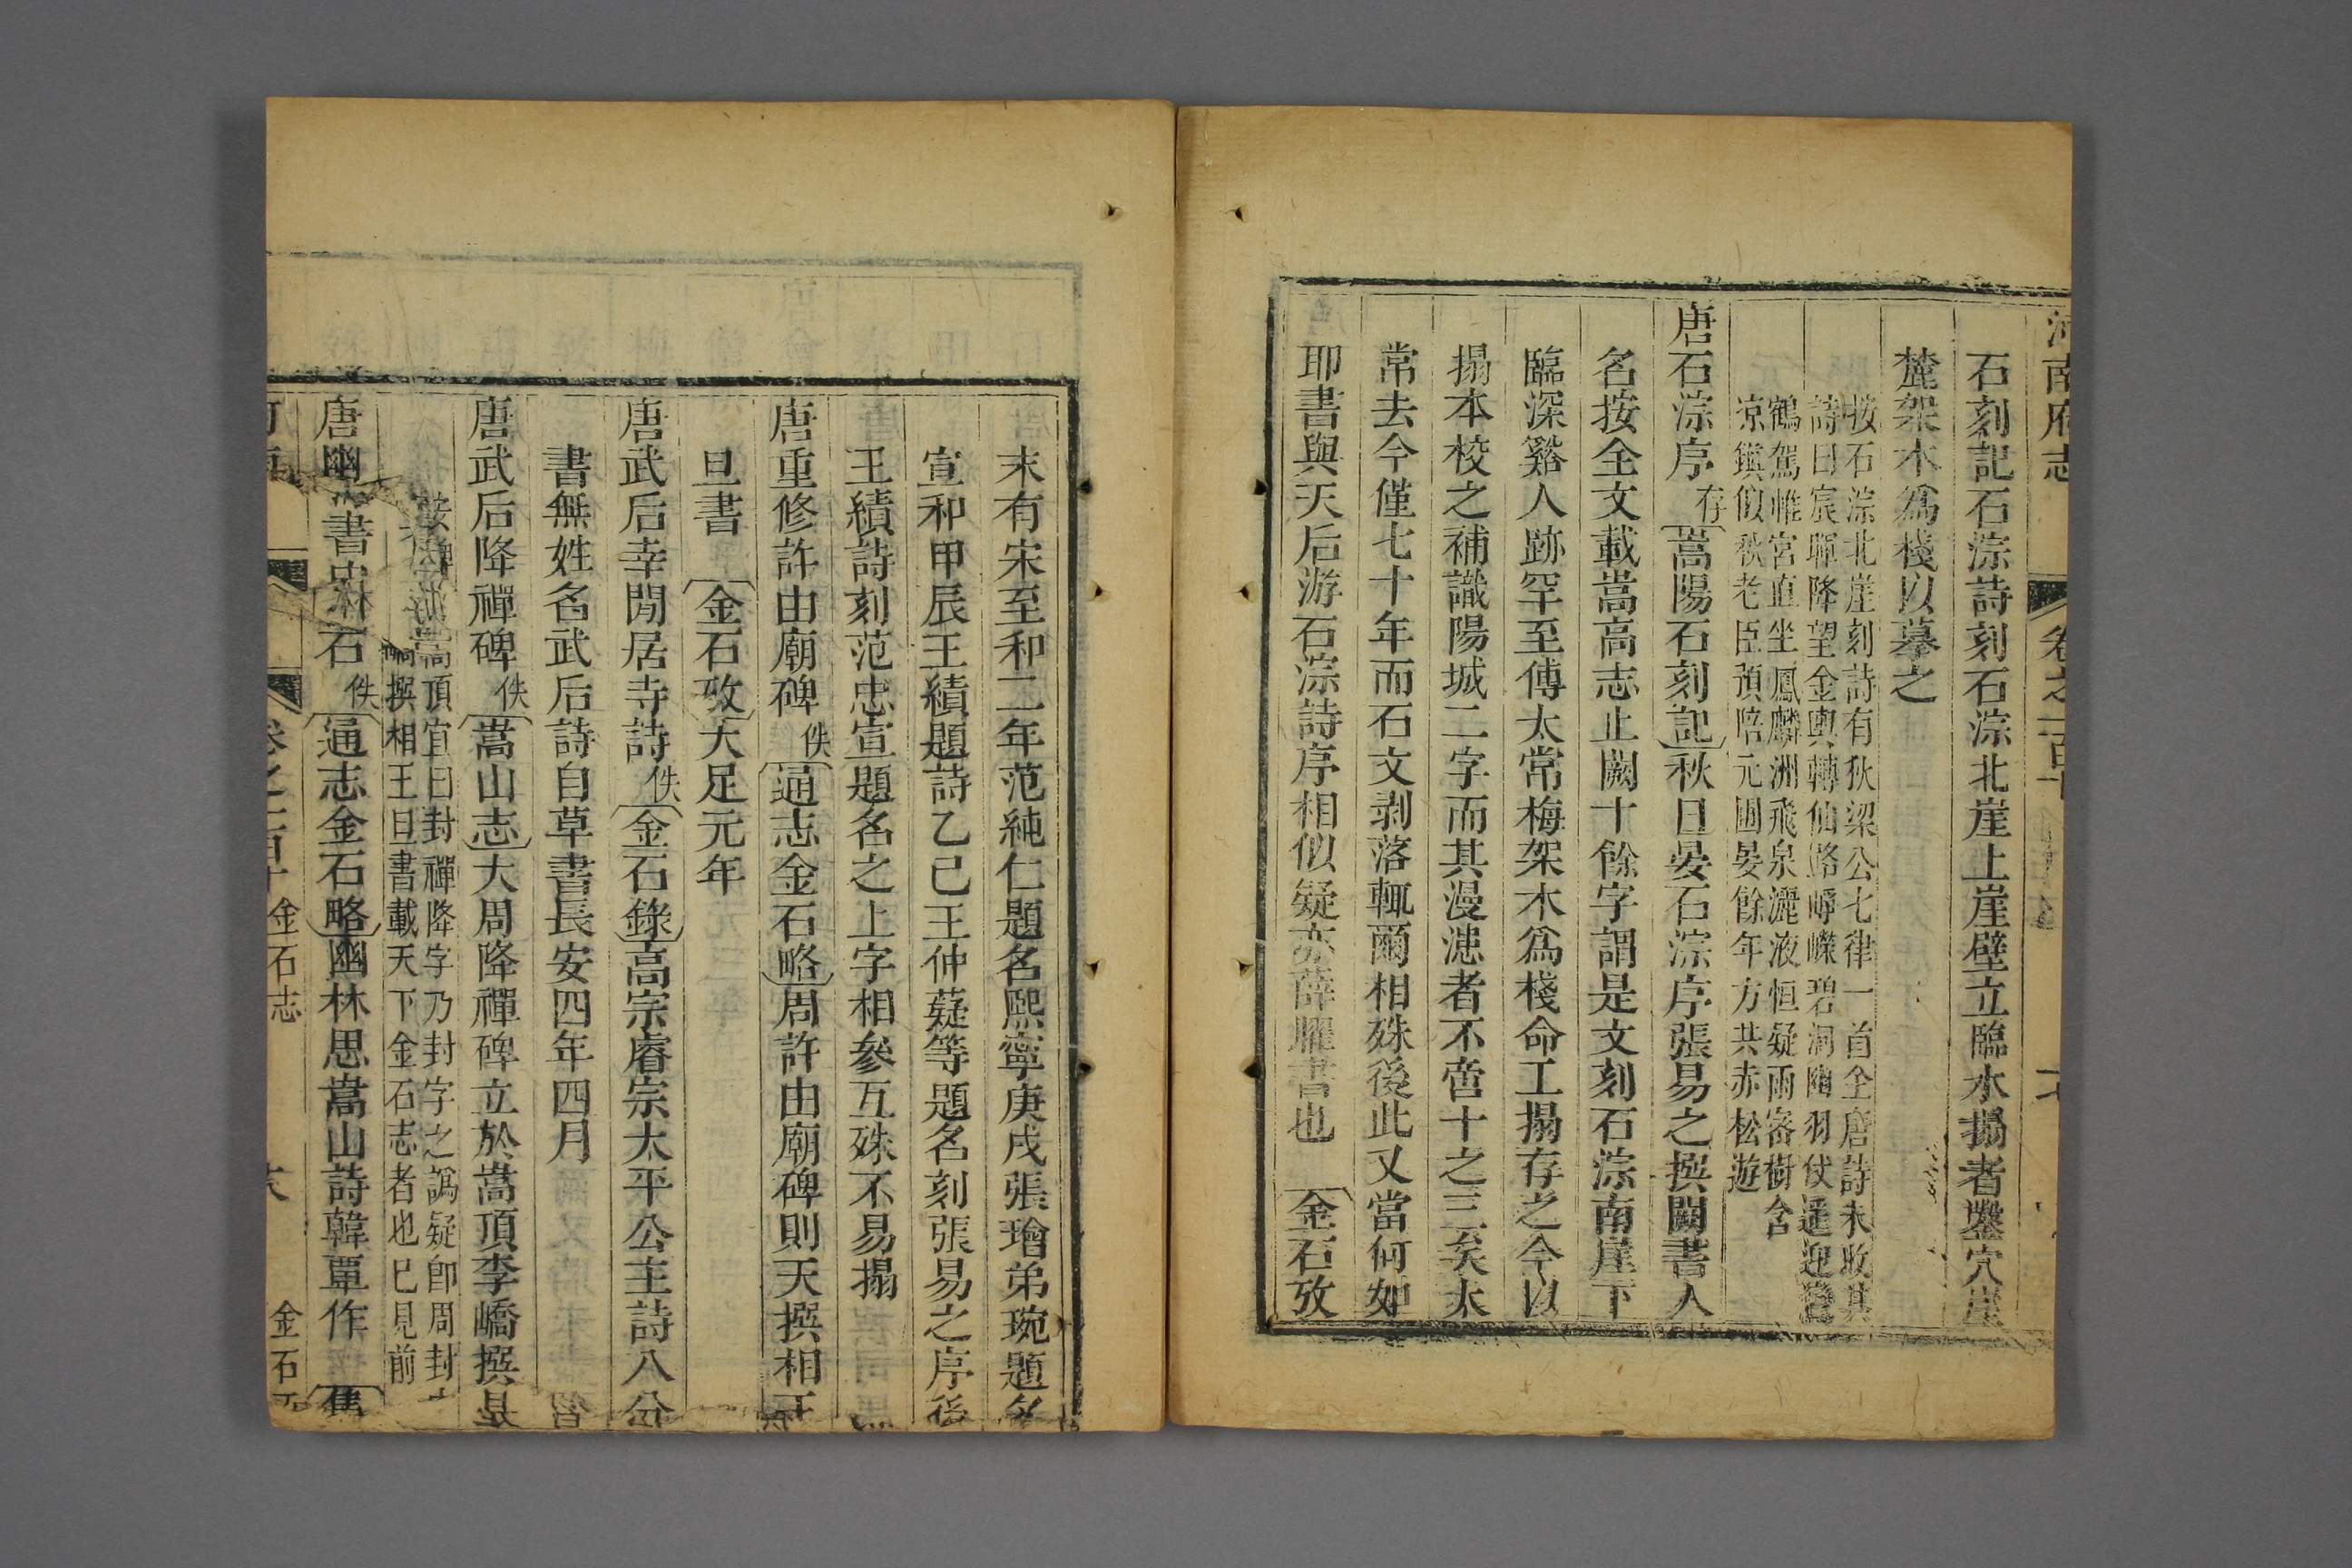 河南府志 卷之一百十
石刻記石淙詩刻石淙北崖上崖壁立臨水搨者鑿穴崖
麓架木爲棧以摹之
按石淙北崖刻詩有狄梁公七律一首全唐詩未收其
詩曰宸暉降望金輿轉仙路崢嶸碧洞幽羽仗遥迎
鶴駕帷宮直坐鳳麟洲飛泉灑液恒疑雨密樹含
凉鎭似秋老臣預陪元圃晏餘年方共赤松遊
唐石淙序 存 嵩陽石刻記秋日晏石淙序張易之撰闕書人
名按全文載嵩高志止闕十餘字謂是文刻石淙南崖下
臨深谿人跡罕至傅太常梅架木爲棧命工搨存之今以
搨本校之補識陽城二字而其漫漶者不啻十之三矣太
常去今僅七十年而石文剥落輒爾相殊後此又當何如
耶書與天后游石淙詩序相似疑亦薛曜書也 金石攷
末有宋至和二年范純仁題名熙寧庚戌張璯弟琬題名
宣和甲辰王績題詩乙巳王仲薿等題名刻張易之序後
王績詩刻范忠宣題名之上字相參互殊不易搨
唐重修許由廟碑 佚 通志金石略周許由廟碑則天撰相王
旦書 金石攷大足元年
唐武后幸閒居寺詩 佚 金石錄高宗睿宗太平公主詩八分
書無姓名武后詩自草書長安四年四月
唐武后降禪碑 佚 嵩山志大周降禪碑立於嵩頂李嶠撰
按 嵩頂宜曰封禪降字乃封字之譌疑卽周封
撰相王旦書載天下金石志者也已見前
唐幽林書 石 佚 通志金石略幽林思嵩山詩韓覃作
卷之一百十 金石志